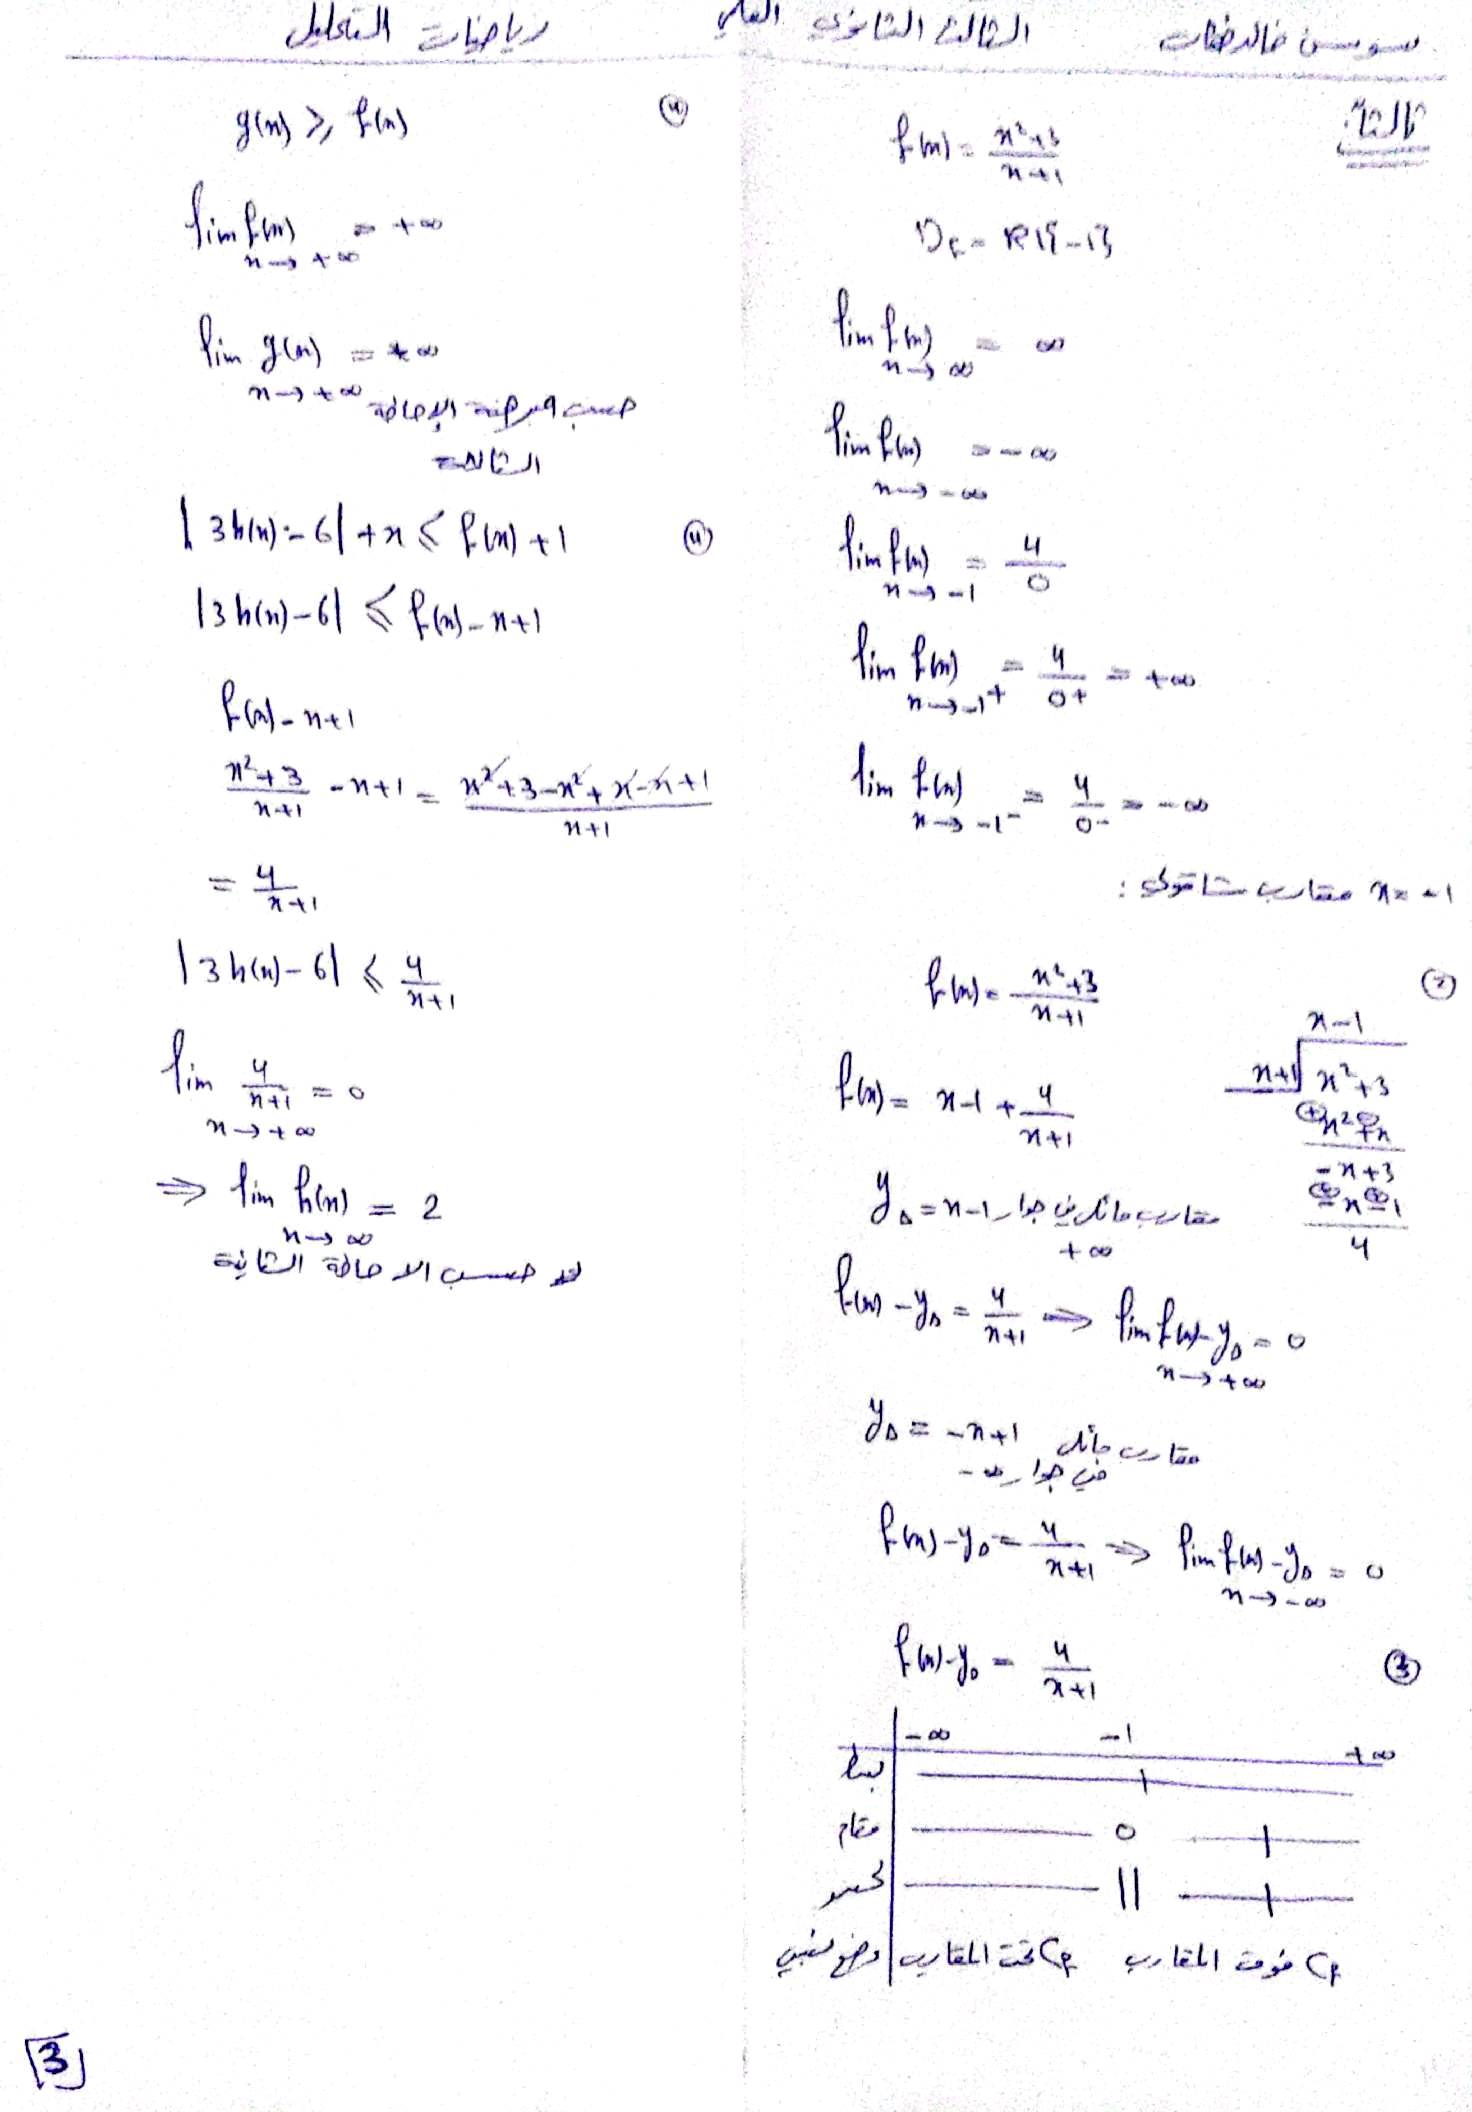 سوسن خالد ... الثالث الثانوي العلمي رياضيات التحليل
ثالثاً:
f(x) = \frac{x²+3}{x+1}
D_f = R\{-1}
lim f(x) x→∞ = ∞
lim f(x) x→-∞ = -∞
lim f(x) x→-1 = \frac{4}{0}
lim f(x) x→-1⁺ = \frac{4}{0+} = +∞
lim f(x) x→-1⁻ = \frac{4}{0-} = -∞
x = -1 مقارب شاقولي :
② f(x) = \frac{x²+3}{x+1}
x-1
x+1 x²+3
⊕x² ⊖+x
-x+3
⊕-x ⊕-1
4
f(x) = x-1 + \frac{4}{x+1}
y_Δ = x-1 مقارب مائل في جوار +∞
f(x) - y_Δ = \frac{4}{x+1} ⇒ lim f(x)-y_Δ x→+∞ = 0
y_Δ = -x+1 مقارب مائل
في جوار -∞
f(x) - y_Δ = \frac{4}{x+1} ⇒ lim f(x)-y_Δ x→-∞ = 0
③ f(x)-y_Δ = \frac{4}{x+1}
-∞ -1 +∞
بسط +
مقام — 0 +
كسر — || +
وضع نسبي C_f تحت المقارب C_f فوق المقارب
④ g(x) ≥ f(x)
lim f(x) x→+∞ = +∞
lim g(x) x→+∞ = +∞
حسب مبرهنة الإحاطة
الثالثة
④ |3h(x)-6| + x ≤ f(x)+1
|3h(x)-6| ≤ f(x)-x+1
f(x)-x+1
\frac{x²+3}{x+1} -x+1 = \frac{x²+3-x²+x-x+1}{x+1}
= \frac{4}{x+1}
|3h(x)-6| ≤ \frac{4}{x+1}
lim \frac{4}{x+1} x→+∞ = 0
⇒ lim h(x) x→∞ = 2
حسب الاحاطة الثانية
3